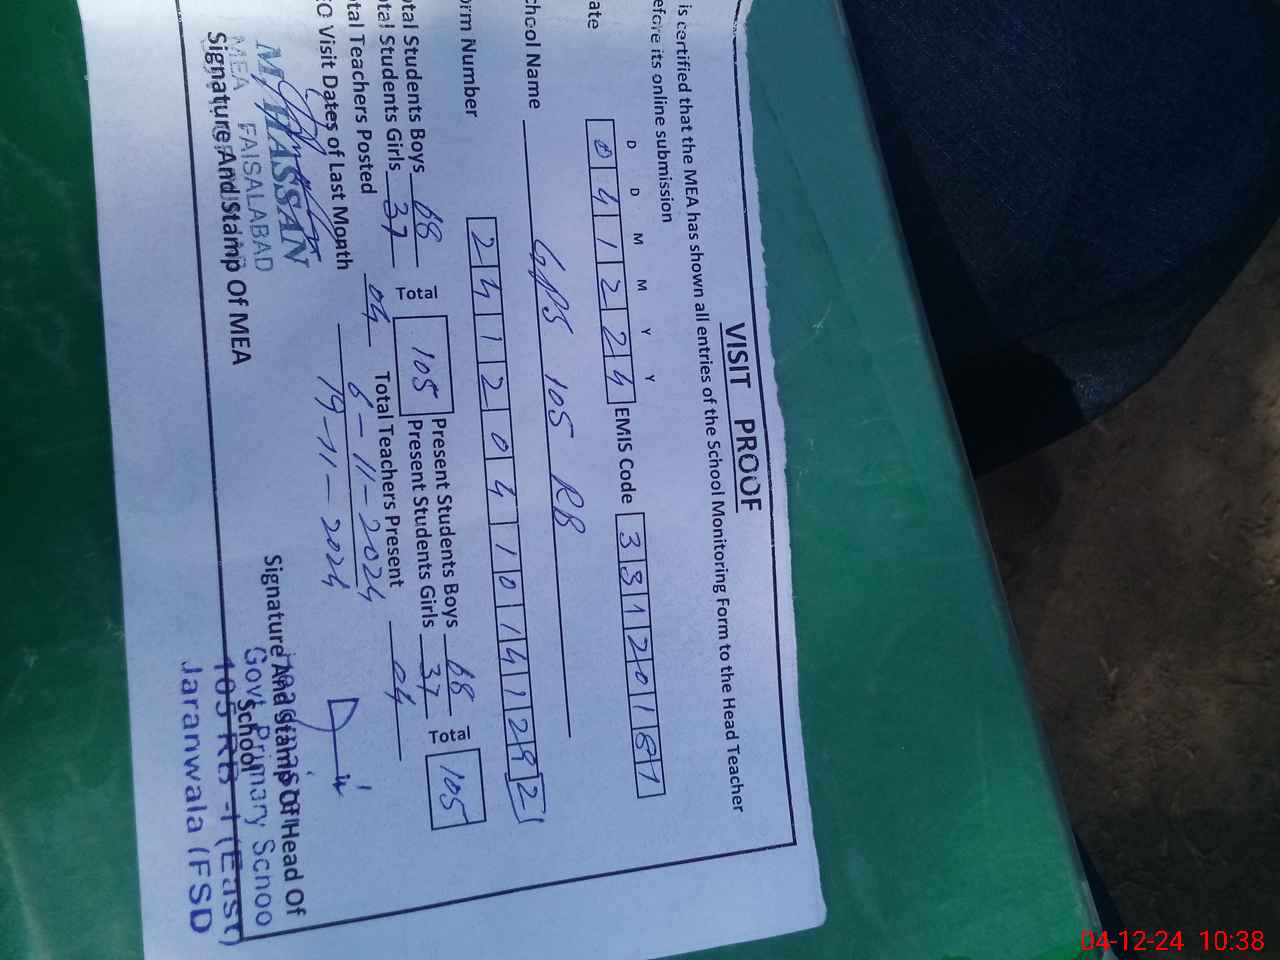 VISIT PROOF
is certified that the MEA has shown all entries of the School Monitoring Form to the Head Teacher
efore its online submission
D D M M Y Y
ate 0 4 1 2 2 4 EMIS Code 3 3 1 2 0 1 8 1
chool Name GPS 105 RB
orm Number 2 4 1 2 0 4 1 0 1 4 1 2 9 2
tal Students Boys 68 Total 105 Present Students Boys 68 Total 105
tal Students Girls 37 Present Students Girls 37
tal Teachers Posted 04 Total Teachers Present 04
EO Visit Dates of Last Month 6-11-2024
19-11-2024
M HASSAN
MEA FAISALABAD
Signature And Stamp Of MEA
Signature And Stamp Of Head Of
School
Govt. Primary Schoo
105 RB-1 (East)
Jaranwala (FSD
04-12-24 10:38